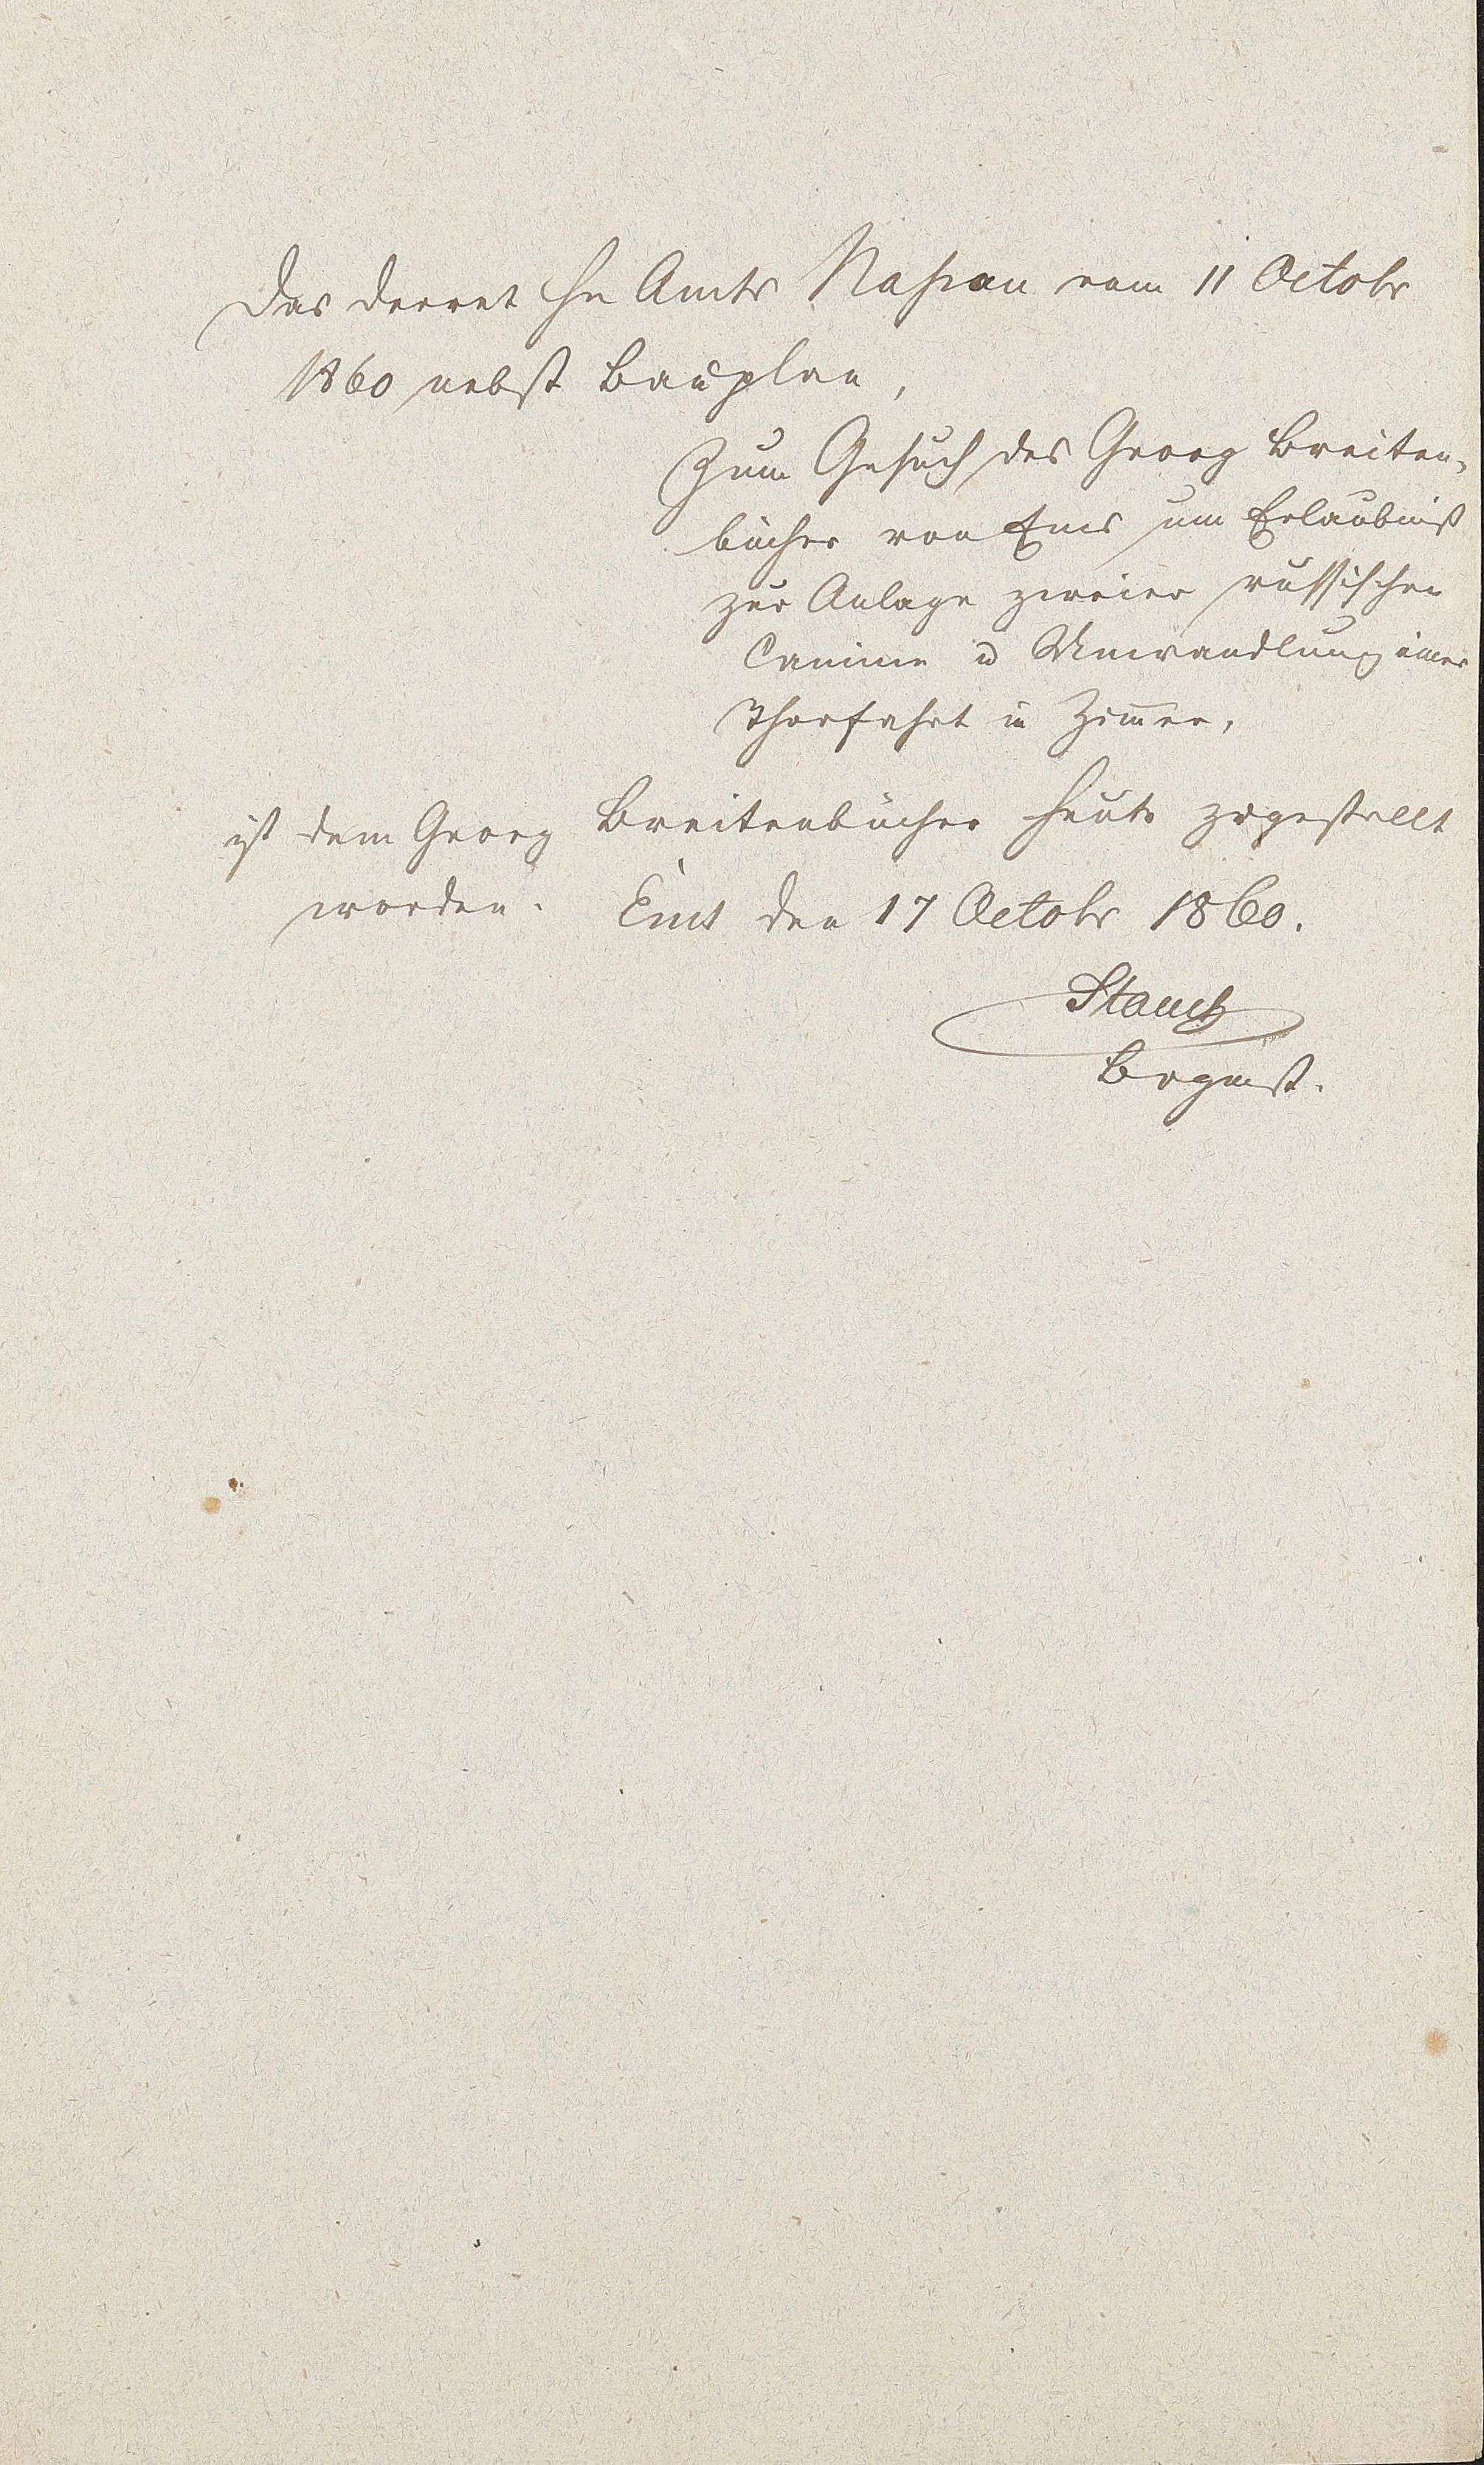 Das Decret Hn Amts Nassau vom 11 Octobr
1860 nebst Bauplan,
Zum Gesuch des Georg Breiten-
bücher von Ems um Erlaubniß
zur Anlage zweier russischen
Camine u Umwandlung einer
Thorfahrt in Zimer,
ist dem Georg Breitenbücher heute zugestellt
worden.   Ems den 17 Octobr 1860.
Stauch
Brgmst.